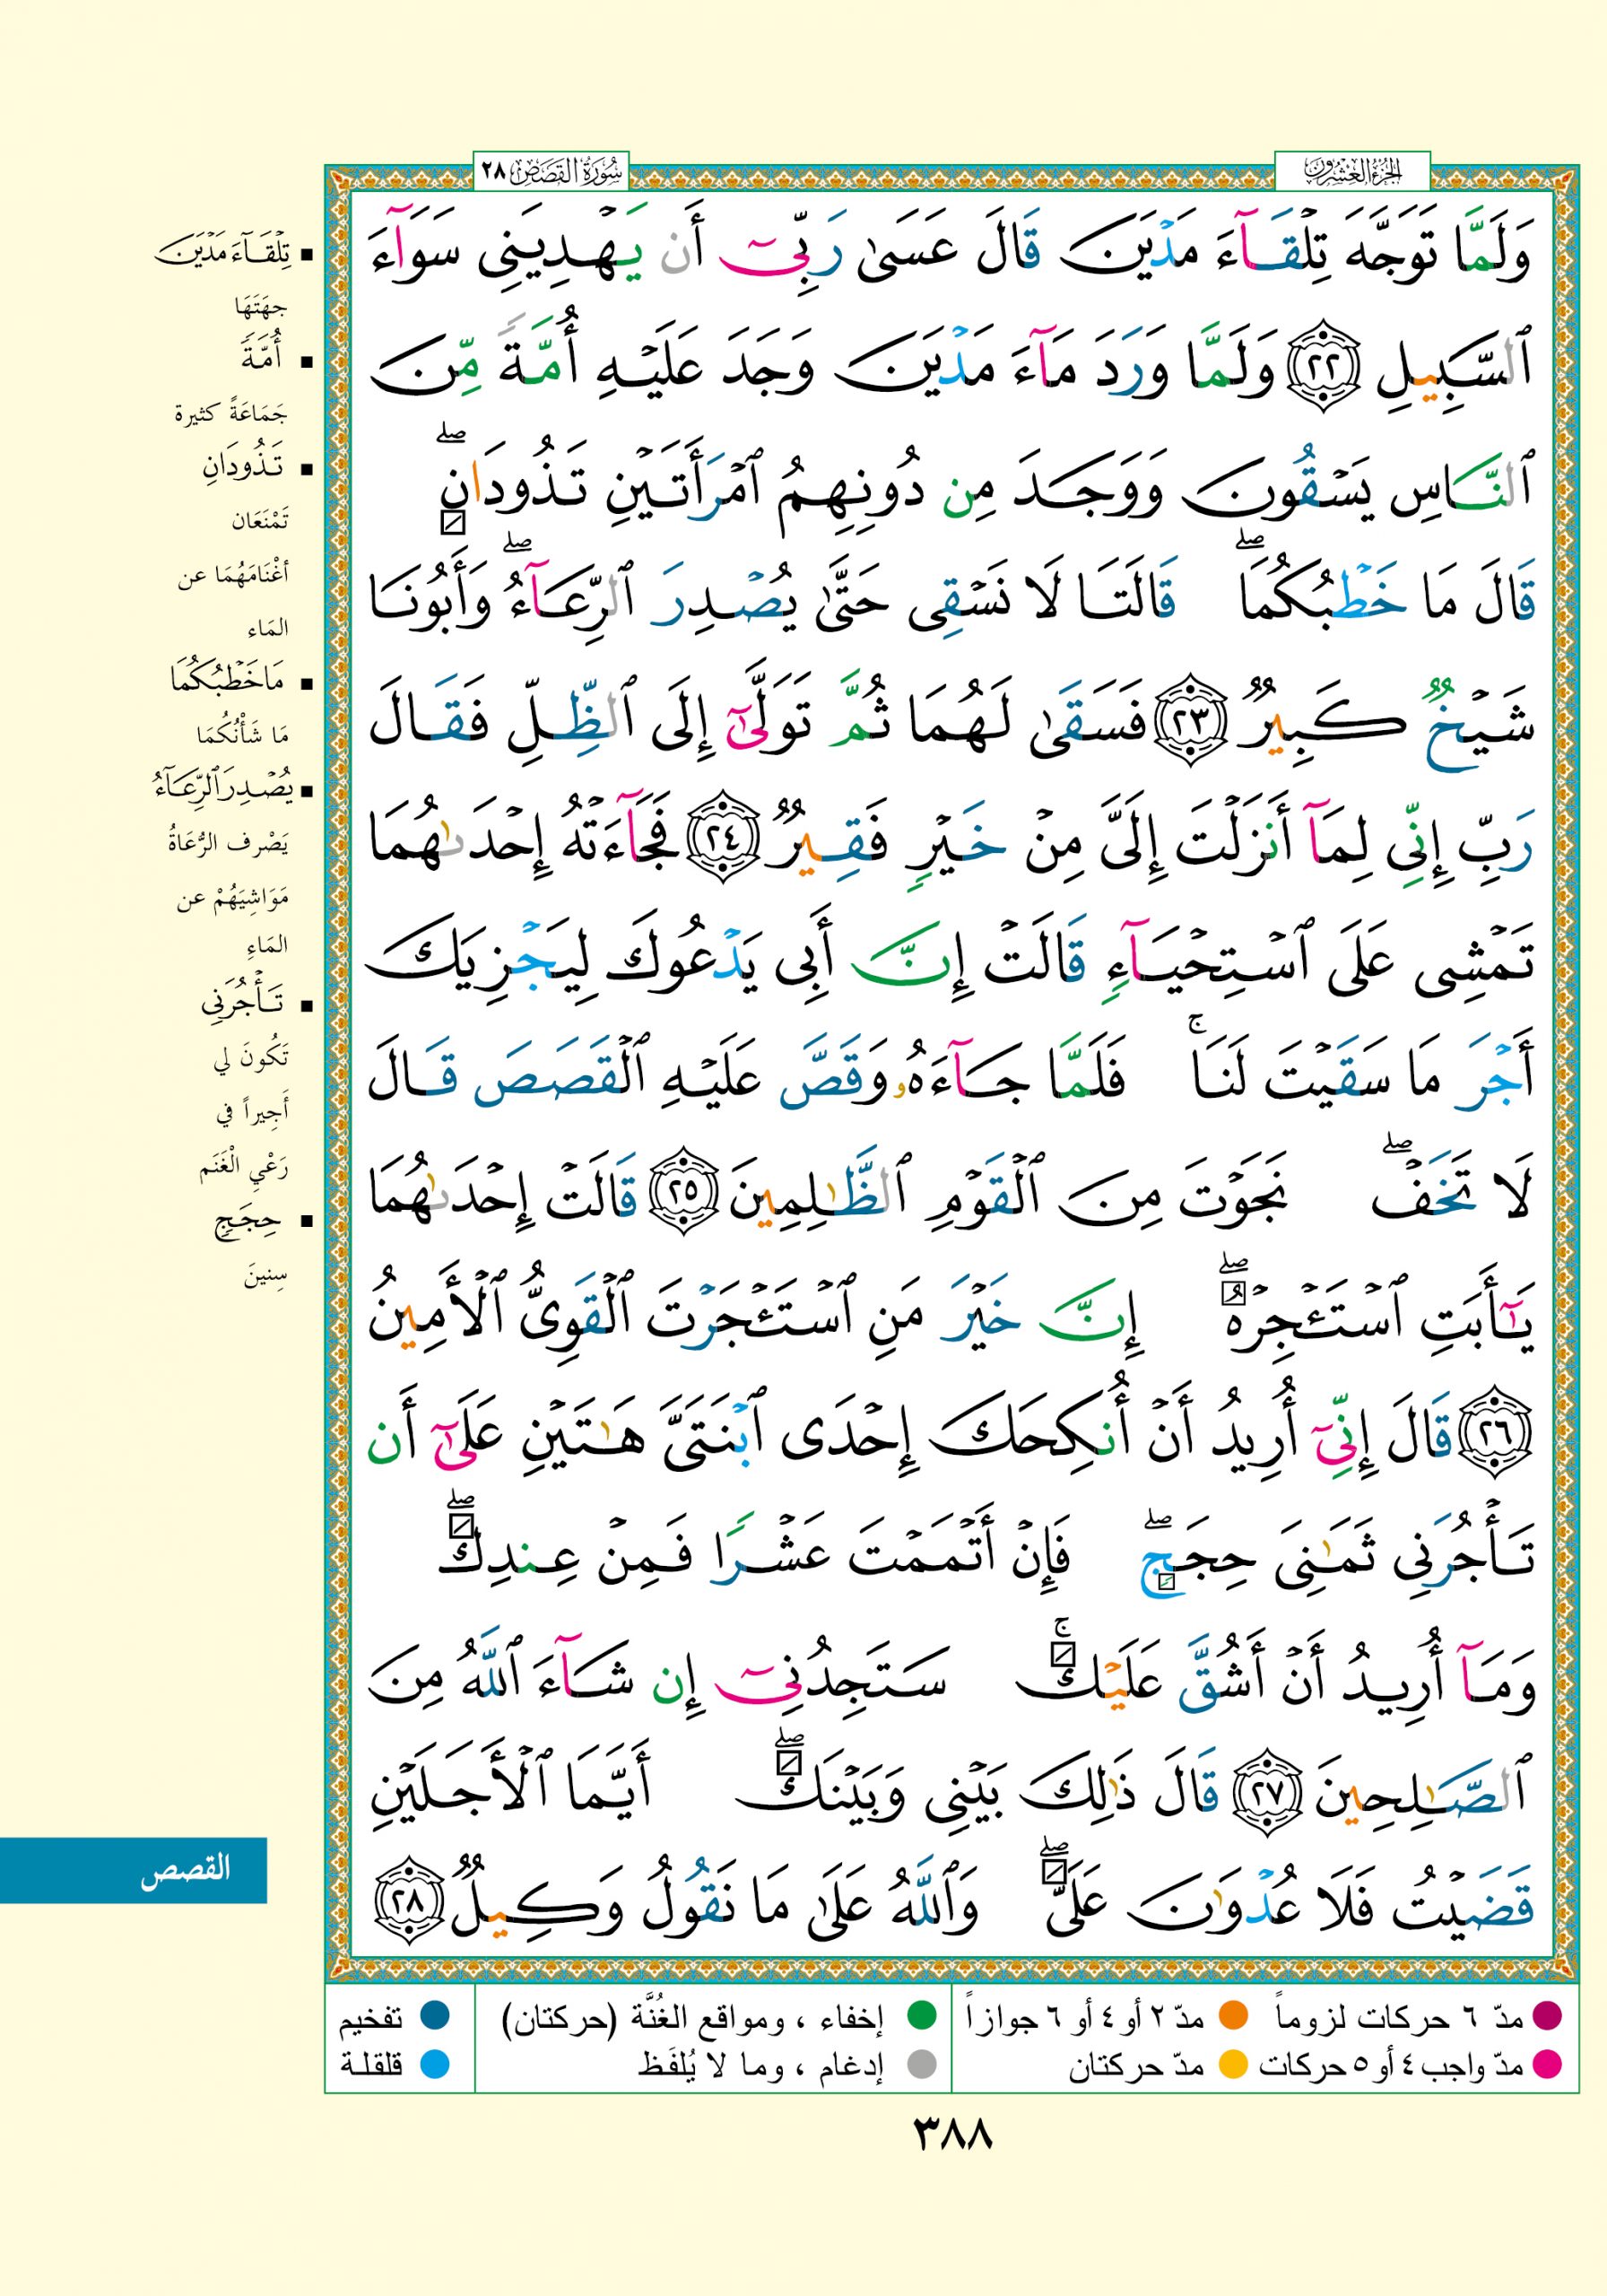 الجزء العشرون
سورة القصص ٢٨
وَلَمَّا تَوَجَّهَ تِلْقَآءَ مَدْيَنَ قَالَ عَسَىٰ رَبِّىٓ أَن يَهْدِيَنِى سَوَآءَ
ٱلسَّبِيلِ ٢٢ وَلَمَّا وَرَدَ مَآءَ مَدْيَنَ وَجَدَ عَلَيْهِ أُمَّةً مِّنَ
ٱلنَّاسِ يَسْقُونَ وَوَجَدَ مِن دُونِهِمُ ٱمْرَأَتَيْنِ تَذُودَانِ ۖ
قَالَ مَا خَطْبُكُمَا ۖ قَالَتَا لَا نَسْقِى حَتَّىٰ يُصْدِرَ ٱلرِّعَآءُ ۖ وَأَبُونَا
شَيْخٌ كَبِيرٌ ٢٣ فَسَقَىٰ لَهُمَا ثُمَّ تَوَلَّىٰٓ إِلَى ٱلظِّلِّ فَقَالَ
رَبِّ إِنِّى لِمَآ أَنزَلْتَ إِلَىَّ مِنْ خَيْرٍ فَقِيرٌ ٢٤ فَجَآءَتْهُ إِحْدَىٰهُمَا
تَمْشِى عَلَى ٱسْتِحْيَآءٍ قَالَتْ إِنَّ أَبِى يَدْعُوكَ لِيَجْزِيَكَ
أَجْرَ مَا سَقَيْتَ لَنَا ۚ فَلَمَّا جَآءَهُۥ وَقَصَّ عَلَيْهِ ٱلْقَصَصَ قَالَ
لَا تَخَفْ ۖ نَجَوْتَ مِنَ ٱلْقَوْمِ ٱلظَّٰلِمِينَ ٢٥ قَالَتْ إِحْدَىٰهُمَا
يَٰٓأَبَتِ ٱسْتَـْٔجِرْهُ ۖ إِنَّ خَيْرَ مَنِ ٱسْتَـْٔجَرْتَ ٱلْقَوِىُّ ٱلْأَمِينُ
٢٦ قَالَ إِنِّىٓ أُرِيدُ أَنْ أُنكِحَكَ إِحْدَى ٱبْنَتَىَّ هَٰتَيْنِ عَلَىٰٓ أَن
تَأْجُرَنِى ثَمَٰنِىَ حِجَجٍ ۖ فَإِنْ أَتْمَمْتَ عَشْرًا فَمِنْ عِندِكَ ۖ
وَمَآ أُرِيدُ أَنْ أَشُقَّ عَلَيْكَ ۚ سَتَجِدُنِىٓ إِن شَآءَ ٱللَّهُ مِنَ
ٱلصَّٰلِحِينَ ٢٧ قَالَ ذَٰلِكَ بَيْنِى وَبَيْنَكَ ۖ أَيَّمَا ٱلْأَجَلَيْنِ
قَضَيْتُ فَلَا عُدْوَٰنَ عَلَىَّ ۖ وَٱللَّهُ عَلَىٰ مَا نَقُولُ وَكِيلٌ ٢٨
تِلْقَآءَ مَدْيَنَ
جِهَتَهَا
أُمَّةً
جَمَاعَةً كثيرة
تَذُودَانِ
تَمْنَعَان
أغْنَامَهُمَا عن
المَاء
مَا خَطْبُكُمَا
مَا شَأْنُكُمَا
يُصْدِرَ ٱلرِّعَآءُ
يَصْرف الرُّعَاةُ
مَوَاشِيَهُمْ عن
المَاءِ
تَأْجُرَنِى
تَكُونَ لي
أَجِيراً في
رَعْيِ الْغَنَم
حِجَجٍ
سِنينَ
القصص
مدّ ٦ حركات لزوماً مدّ ٢ أو ٤ أو ٦ جوازاً إخفاء ، ومواقع الغُنَّة (حركتان) تفخيم
مدّ واجب ٤ أو ٥ حركات مدّ حركتان إدغام ، وما لا يُلفَظ قلقلة
٣٨٨